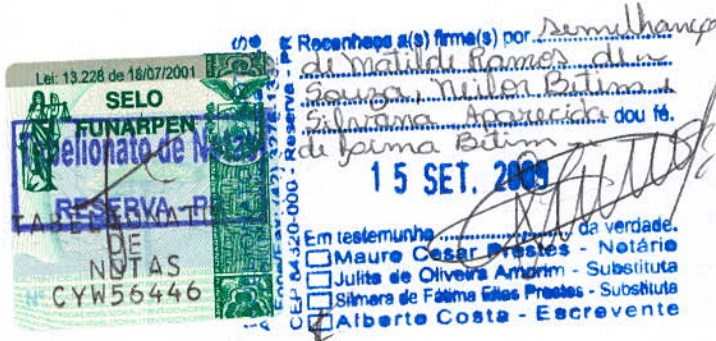 Lei: 13.228 de 18/07/2001
SELO
FUNARPEN
Tabelionato de Notas
RESERVA - PR
TABELIONATO
DE
NOTAS
Nº CYW56446
CEP 84320-000 - Reserva - PR
Reconheço a(s) firma(s) por semelhança
de Matilde Ramos de
Souza, Neilor Bitim e
Silvana Aparecida dou fé.
de Bitim
15 SET. 2009
Em testemunho da verdade.
Mauro Cesar Prestes - Notário
Julita de Oliveira Amorim - Substituta
Silmara de Fátima Elias Prestes - Substituta
Alberto Costa - Escrevente